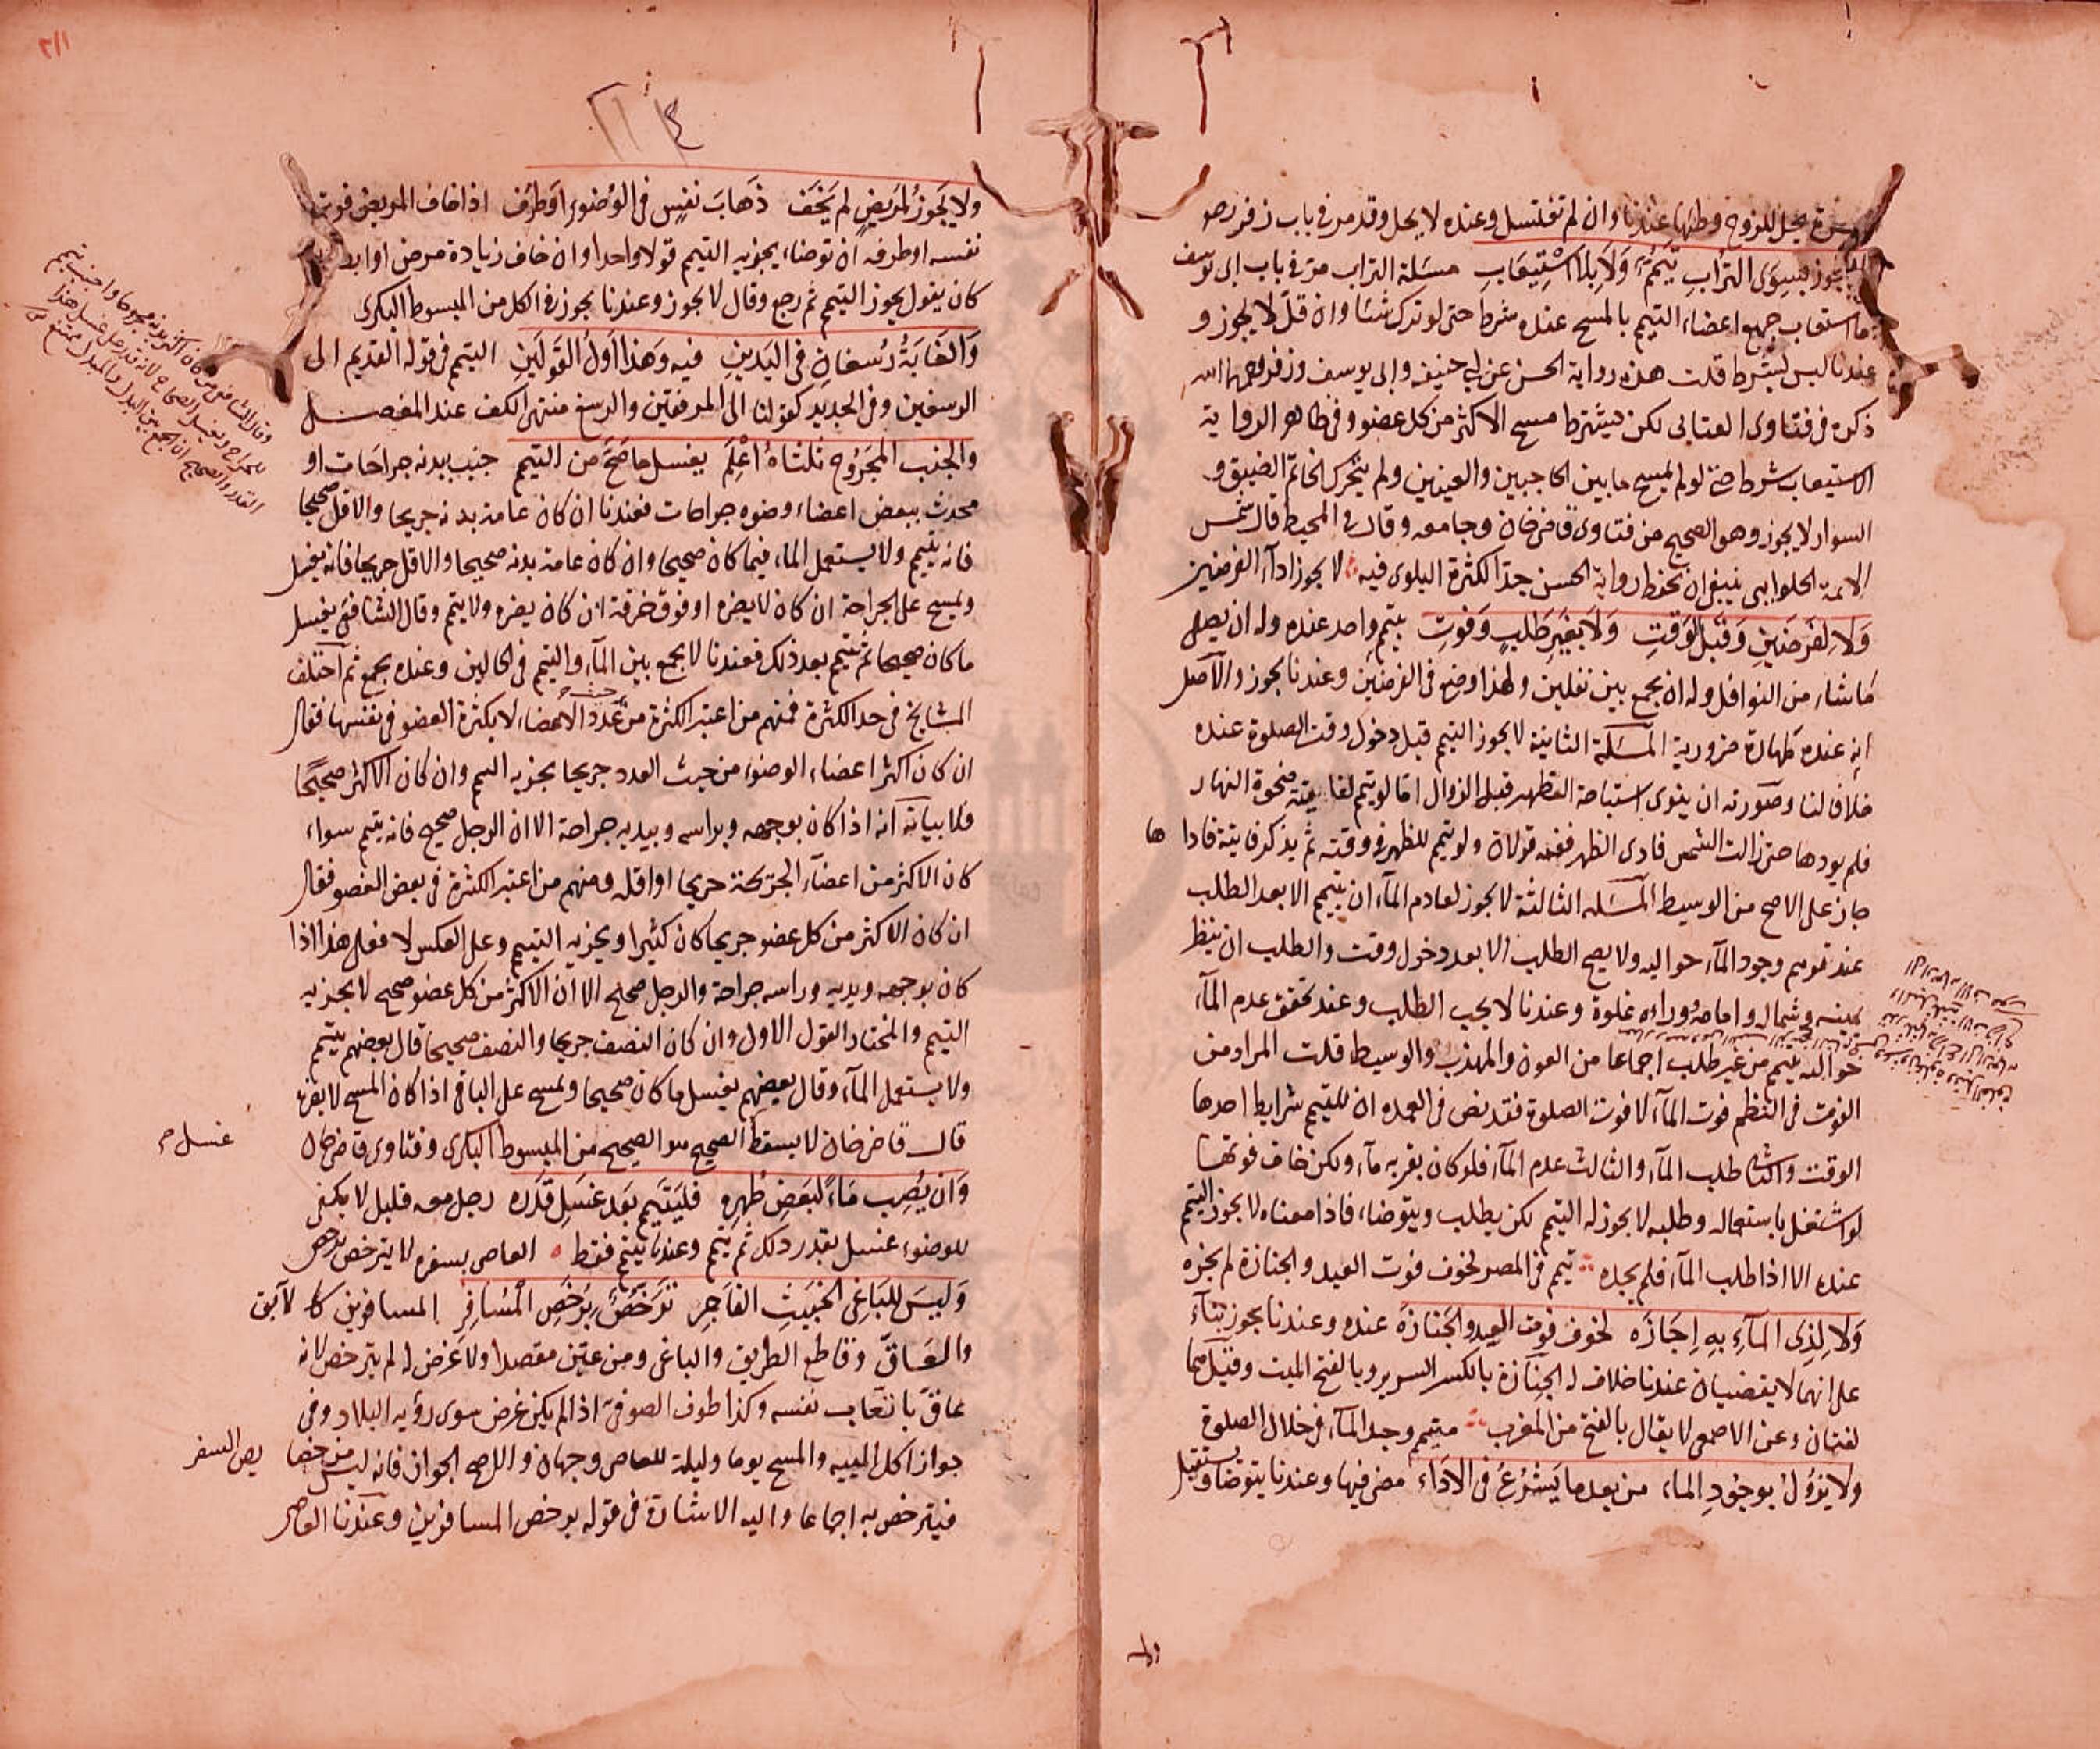 يحل للزوج وطئها عندنا وان لم تغتسل وعنده لا يحل وقد مر فى باب زفر رحمه
يجوز بسوى التراب تيمم وَلَا بلا اسْتِيعَابِ مسئلة التراب مر فى باب ابى يوسف
ما استيعاب جميع اعضاء التيمم بالمسح عنده شرط حتى لو ترك شئا وان قل لا يجوز و
عندنا ليس بشرط قلت هذه رواية الحسن عن ابى حنيفه وابى يوسف وزفر رحمهما الله
ذكره فى فتاوى العتابى لكن يشترط مسح الاكثر من كل عضو وفى ظاهر الرواية
الاستيعاب شرط حتى لو لم يمسح ما بين الحاجبين والعينين ولم يحرك الخاتم الضيق و
السوار لا يجوز وهو الصحيح من فتاوى قاضى خان وجامعه وقال فى المحيط قال شمس
الايمة الحلوانى ينبغى ان تحفظ رواية الحسن جدا لكثرة البلوى فيه لا يجوز اداء الفرضين
وَلَا لِفَرْضَينِ وَقَبْلَ الوَقتِ وَلَا بِغَيرِ طَلَبٍ وَفَوتِ بتيمم واحد عنده وله ان يصلى
ما شاء من النوافل وله ان يجمع بين نفلين ولهذا وضع فى الفرضين وعندنا يجوز والاصل
انه عنده طهارة ضرورية المسئلة الثانية لا يجوز التيمم قبل دخول وقت الصلوة عنده
خلافا لنا وصورته ان ينوى استباحة الظهر قبل الزوال اما لو تيمم لفايتة ضحوة النهار
فلم يودها حتى زالت الشمس فادى الظهر ففيه قولان ولو تيمم للظهر فى وقته ثم يذكر فايتة فادا ها
جاز على الاصح من الوسيط المسئله الثالثة لا يجوز لعادم الماء ان يتيمم الا بعد الطلب
عند توهم وجود الماء حواليه ولا يصح الطلب الا بعد دخول وقت والطلب ان ينظر
يمينه وشماله وامامه ووراءه غلوة وعندنا لا يجب الطلب وعند تحقق عدم الماء
حواليه يتيمم من غير طلب اجماعا من العون والمهذب والوسيط قلت المراد من
الفوت فى النظم فوت الماء لا فوت الصلوة فقد نص فى العمده ان للتيمم شرايط احدها
الوقت والثانى طلب الماء والثالث عدم الماء فلو كان بقربه ماء ولكن خاف فوتها
لو اشتغل باستعماله وطلبه لا يجوز له التيمم لكن يطلب ويتوضا، فاذا معناه لا يجوز التيمم
عنده الا اذا طلب الماء فلم يجده تيمم فى المصر لخوف فوت العيد والجنازة لم يجزه
وَلَا لِذِى المآءِ بِهِ اِجَازَه لخوف فوت العيد والجنازة عنده وعندنا يجوز بناء
على انهما لا يقضيان عندنا خلاف له الجنازة بالكسر السرير وبالفتح الميت وقيل هما
لغتان وعن الاصمعى لا يقال بالفتح من المغرب متيمم وجد الماء فى خلال الصلوة
ولا يزول بوجود الماء من بعد ما يَشْرُعُ فى الاداء مضى فيها وعندنا يتوضا ويستقبل
ولا
ولا يَجوزُ لمَريضٍ لم يَخَف ذَهابَ نفسٍ فى الوُضوءِ اوطرَف اذا خاف المريض فوت
نفسه او طرفه ان توضا، يجزيه التيمم قولا واحدا وان خاف زيادة مرض او ابطاء
كان يقول يجوز التيمم ثم رجع وقال لا يجوز وعندنا يجوز فى الكل من المبسوط البكرى
وَالغَايَةُ رُسغانِ فى اليَدينِ فيه وَهذا اَولُ القَولَينِ التيمم فى قوله القديم الى
الرسغين وفى الجديد كقولنا الى المرفقين والرسغ منتهى الكف عند المفصل
والجنب المجَروح ثلثاهُ اعْلَم يغسل ما صَحَّ من التيمم جنب ببدنه جراحات او
محدث ببعض اعضاء وضوه جراحات فعندنا ان كان عامة بدنه جريحا والاقل صحيحا
فانه يتيمم ولا يستعمل الماء فيما كان صحيحا وان كان عامة بدنه صحيحا والاقل جريحا فانه يغسل
ويمسح على الجراحة ان كان لا يضره او فوق خرقة ان كان يضره ولا يتيمم وقال الشافعى يغسل
ما كان صحيحا ثم يتيمم بعد ذلك فعندنا لا يجمع بين الماء والتيمم فى الحالين وعنده يجمع ثم اختلف
المشايخ فى حد الكثرة فمنهم من اعتبر الكثرة من عدد الاعضاء لا بكثرة العضو فى نفسها فقال
ان كان اكثر اعضاء الوضوء من حيث العدد جريحا يجزيه التيمم وان كان الاكثر صحيحًا
فلا بيانه انه اذا كان بوجهه وبراسه وبيديه جراحة الا ان الرجل صحيح فانه يتيمم سواء
كان الاكثر من اعضاء الجريحة جريحا او اقله ومنهم من اعتبر الكثرة فى بعض العضو فقال
ان كان الاكثر من كل عضو جريحا كان كثيرا ويجزيه التيمم وعلى العكس لا فعلى هذا اذا
كان بوجهه ويديه وراسه جراحة والرجل صحيح الا ان الاكثر من كل عضو صحيح لا يجزيه
التيمم والمختار القول الاول وان كان النصف جريحا والنصف صحيحا قال بعضهم يتيمم
ولا يستعمل الماء وقال بعضهم يغسل ما كان صحيحا ويمسح على الباقى اذا كان المسح لا يضره
قال قاضى خان لا يسقط الصحيح هو الصحيح من المبسوط البكرى وفتاوى قاضى خان
غسل
وَان يُصِب مَاءً لبَعضِ طُهرِه فليَتَيمم بَعد غَسَلِ قَدره رجل معه قليل لا يكفى
للوضوء غسل بقدر ذلك ثم تيمم وعندنا يتيمم فقط العاصى بسفره لا يترخص برخص
وَليسَ للبَاغِى الخبَيثِ الفَاجرِ تَرَخّصٌ برُخَصِ المسَافِر المسافرين كالآبق
والعَاقّ وقاطع الطريق والباغى ومن عين مقصدا ولا غرض له لم يترخص لانه
عاقّ باتعاب نفسه وكذا طوف الصوفى اذا لم يكن غرض سوى رؤيه البلاد وفى
جواز اكل الميته والمسح يوما وليلة للعاصى وجهان والاصح الجواز فانه ليس من خصا
يص السفر
فيترخص به اجماعا واليه الاشارة فى قوله برخص المسافرين وعندنا العاصى